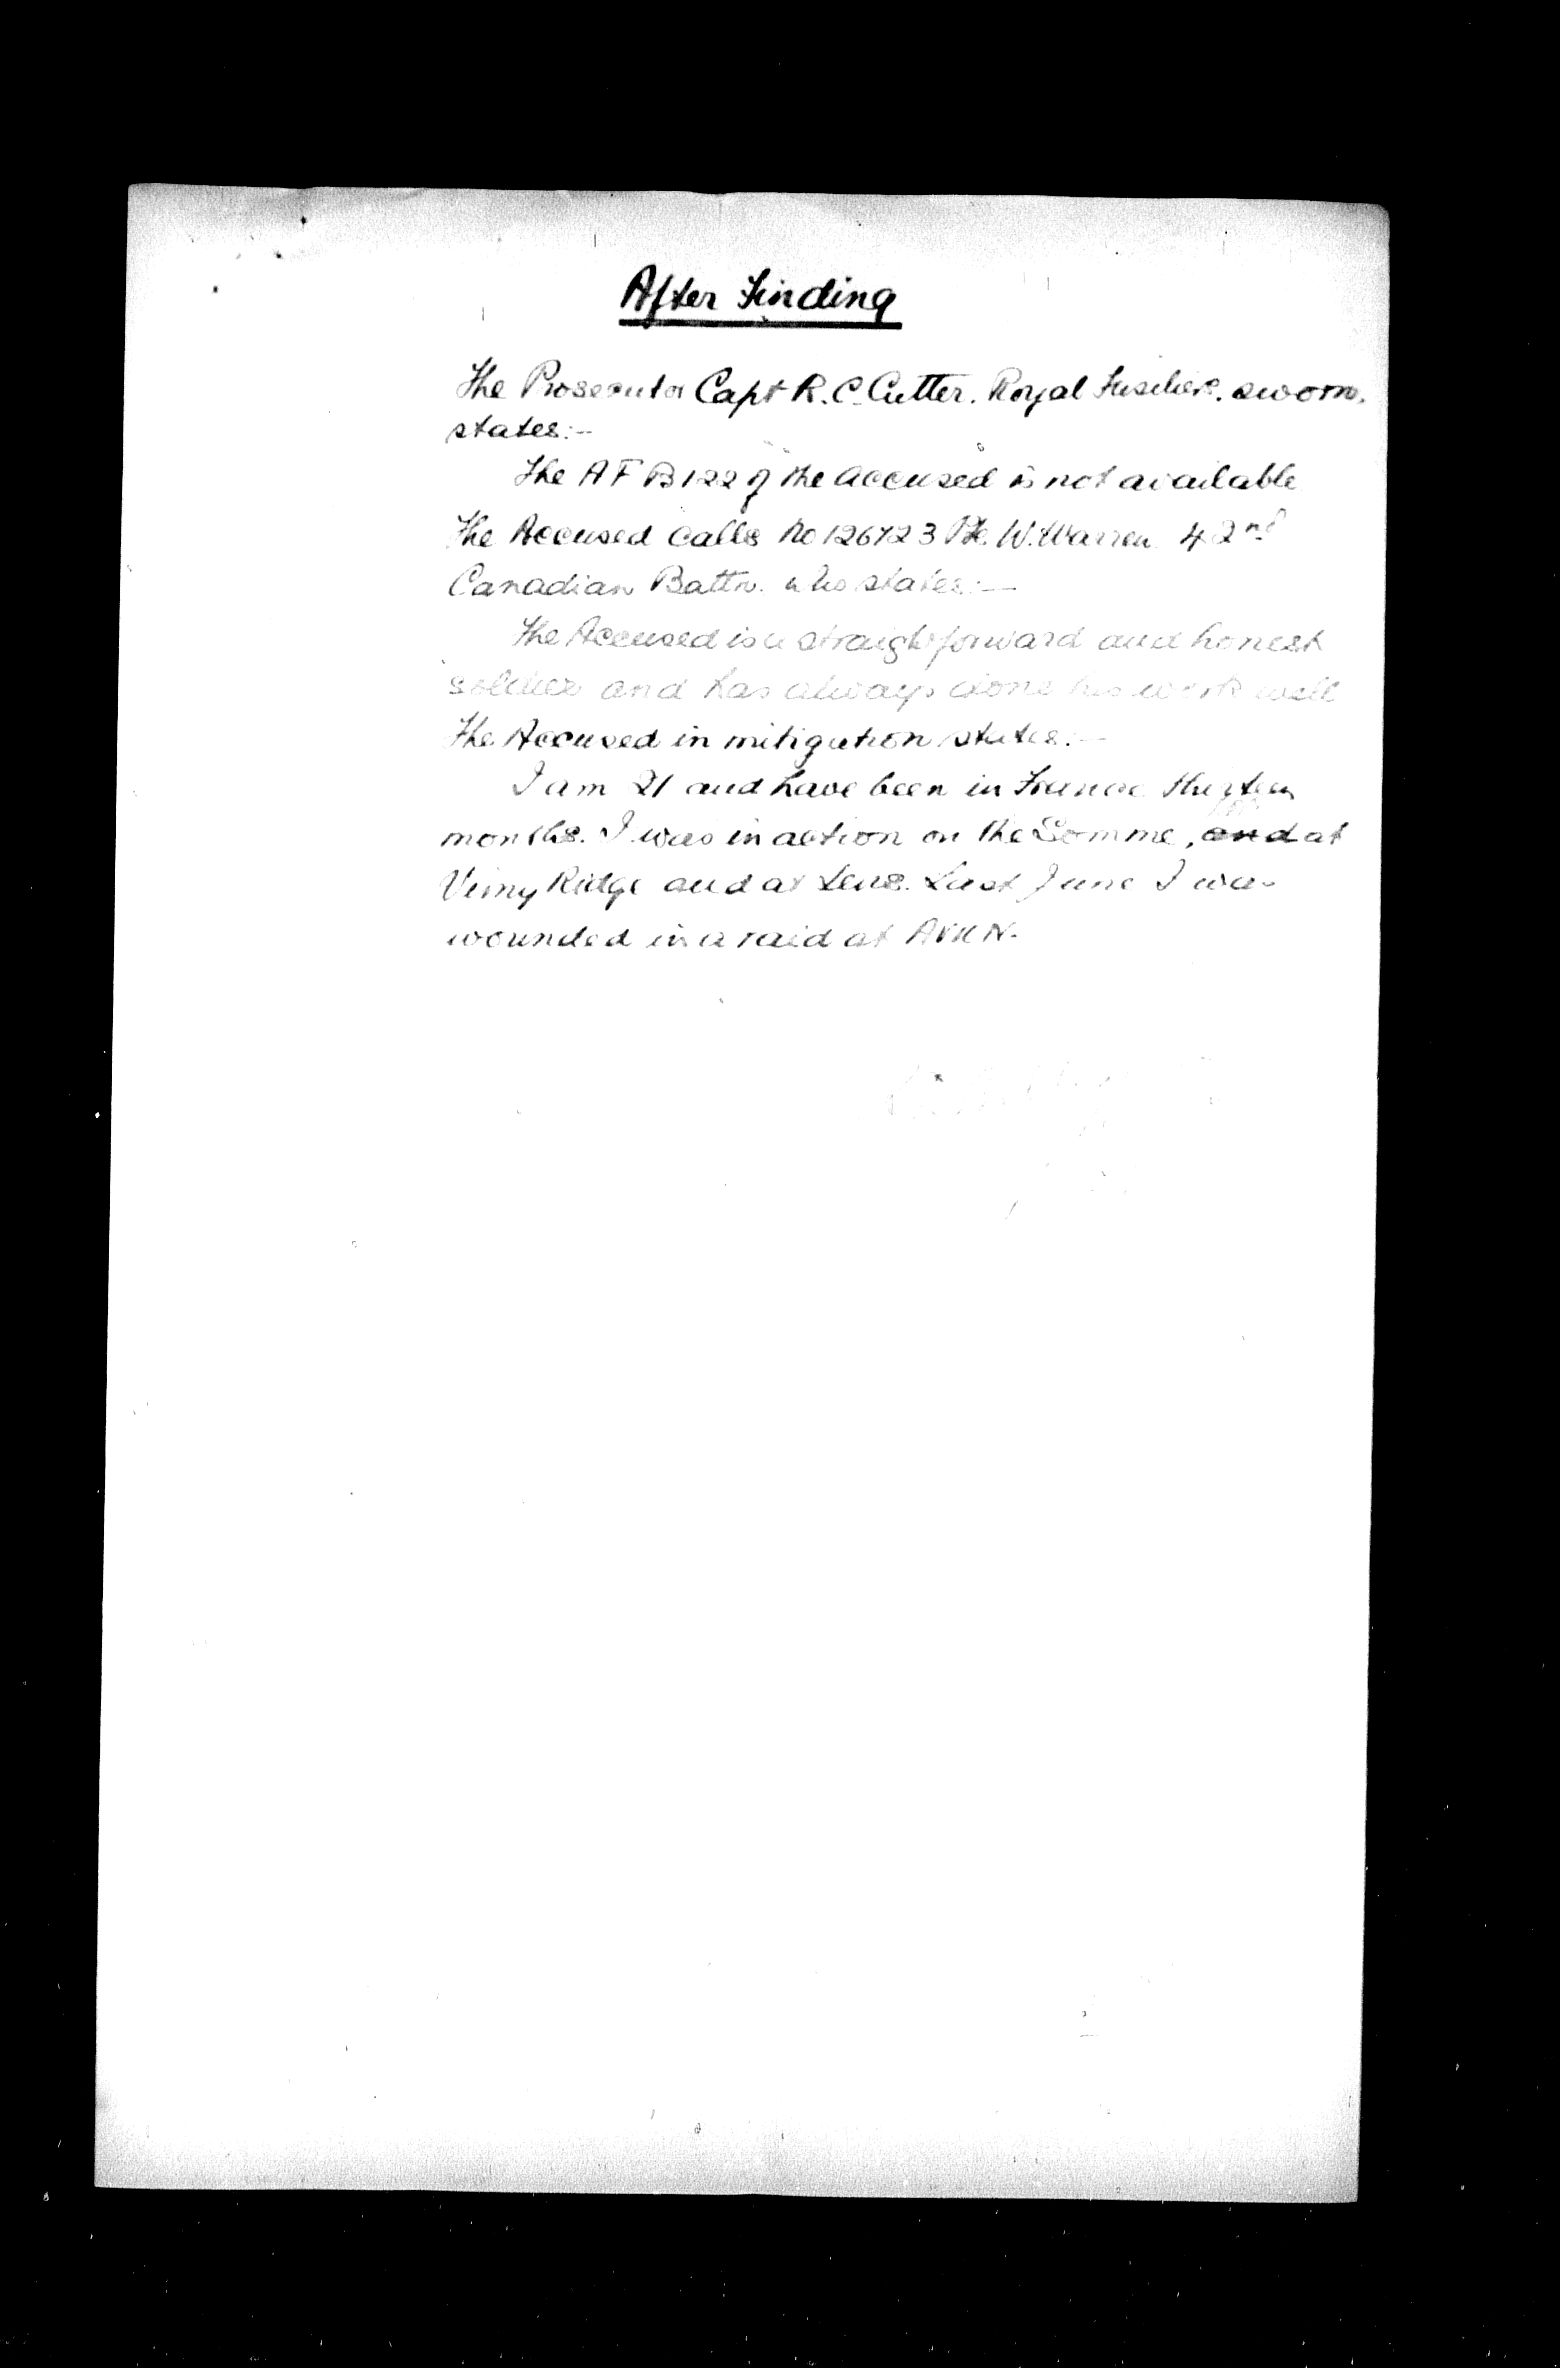 After Finding
The Prosecutor Capt R. C. Cutter. Royal Fusiliers. sworn.
states:-
The A F B 122 of the accused is not available
The Accused calls No 126723 Pte. W. Warren 42nd
Canadian Battn. who states:-
The Accused is a straightforward and honest
soldier and has always done his work well
The Accused in mitigation states:-
I am 21 and have been in France thirteen
months. I was in action on the Somme, and at
Vimy Ridge and at Lens. Last June I was
wounded in a raid at